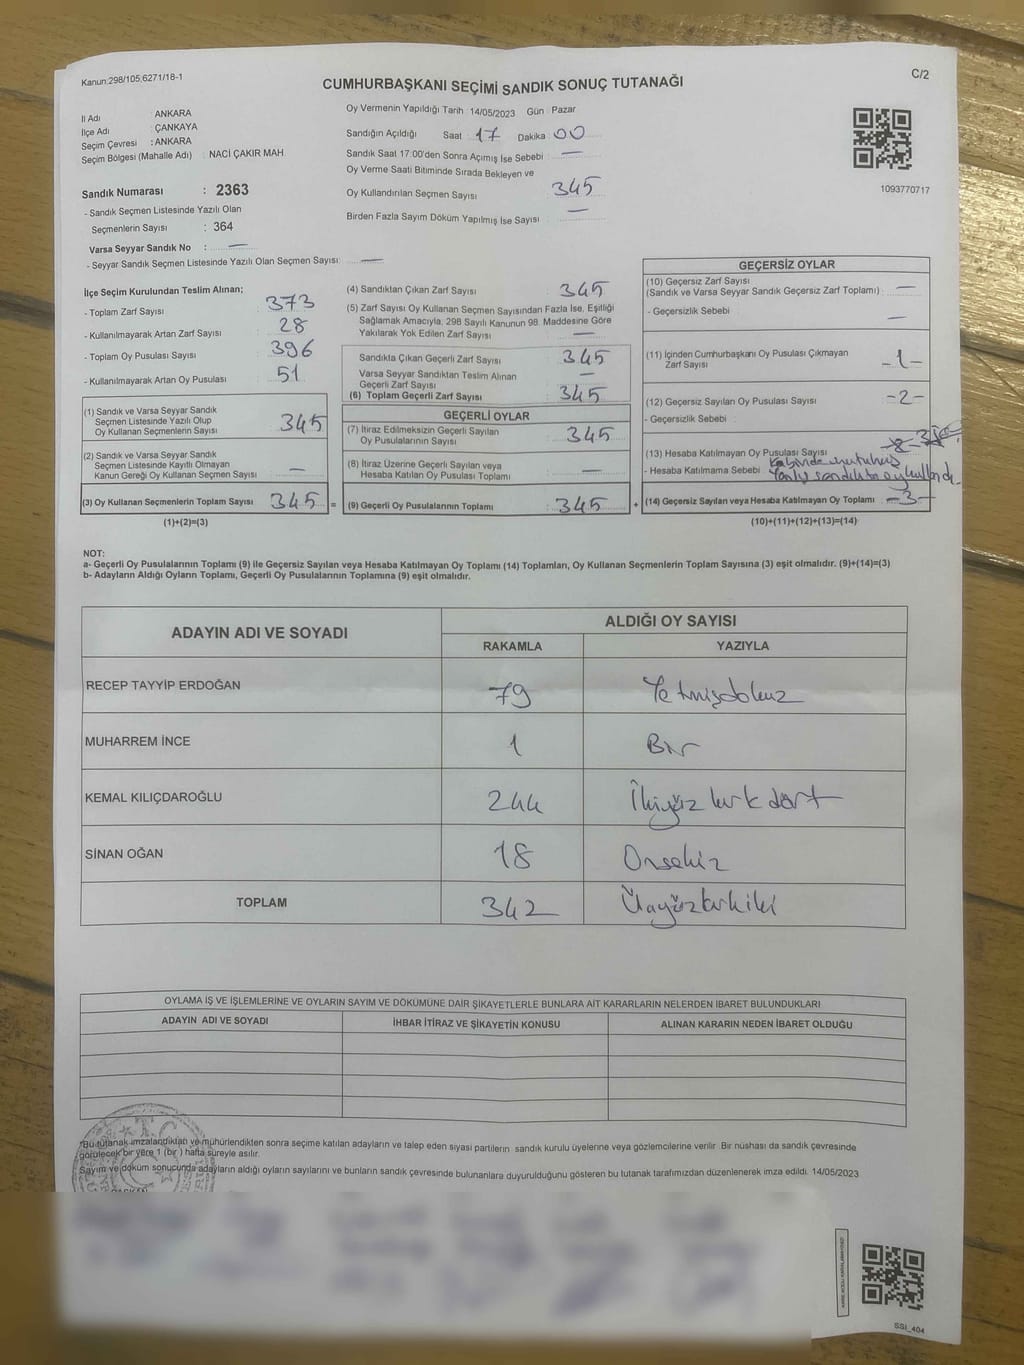 Kanun:298/105,6271/18-1
C/2
CUMHURBAŞKANI SEÇİMİ SANDIK SONUÇ TUTANAĞI
İl Adı ANKARA
İlçe Adı : ÇANKAYA
Seçim Çevresi : ANKARA
Seçim Bölgesi (Mahalle Adı) : NACİ ÇAKIR MAH.
Oy Vermenin Yapıldığı Tarih : 14/05/2023 Gün : Pazar
Sandığın Açıldığı Saat : 17 Dakika : 00
Sandık Saat 17:00'den Sonra Açımış İse Sebebi : —
Oy Verme Saati Bitiminde Sırada Bekleyen ve
Oy Kullandırılan Seçmen Sayısı : 345
Birden Fazla Sayım Döküm Yapılmış İse Sayısı : —
1093770717
Sandık Numarası : 2363
- Sandık Seçmen Listesinde Yazılı Olan
Seçmenlerin Sayısı : 364
Varsa Seyyar Sandık No : —
- Seyyar Sandık Seçmen Listesinde Yazılı Olan Seçmen Sayısı: —
İlçe Seçim Kurulundan Teslim Alınan;
- Toplam Zarf Sayısı : 373
- Kullanılmayarak Artan Zarf Sayısı : 28
- Toplam Oy Pusulası Sayısı : 396
- Kullanılmayarak Artan Oy Pusulası : 51
(1) Sandık ve Varsa Seyyar Sandık
Seçmen Listesinde Yazılı Olup
Oy Kullanan Seçmenlerin Sayısı : 345
(2) Sandık ve Varsa Seyyar Sandık
Seçmen Listesinde Kayıtlı Olmayan
Kanun Gereği Oy Kullanan Seçmen Sayısı : —
(3) Oy Kullanan Seçmenlerin Toplam Sayısı : 345 =
(1)+(2)=(3)
(4) Sandıktan Çıkan Zarf Sayısı : 345
(5) Zarf Sayısı Oy Kullanan Seçmen Sayısından Fazla İse, Eşitliği
Sağlamak Amacıyla, 298 Sayılı Kanunun 98. Maddesine Göre
Yakılarak Yok Edilen Zarf Sayısı : —
Sandıkta Çıkan Geçerli Zarf Sayısı : 345
Varsa Seyyar Sandıktan Teslim Alınan
Geçerli Zarf Sayısı : —
(6) Toplam Geçerli Zarf Sayısı : 345
GEÇERLİ OYLAR
(7) İtiraz Edilmeksizin Geçerli Sayılan
Oy Pusulalarının Sayısı : 345
(8) İtiraz Üzerine Geçerli Sayılan veya
Hesaba Katılan Oy Pusulaları Toplamı : —
(9) Geçerli Oy Pusulalarının Toplamı : 345 +
GEÇERSİZ OYLAR
(10) Geçersiz Zarf Sayısı
(Sandık ve Varsa Seyyar Sandık Geçersiz Zarf Toplamı) : —
- Geçersizlik Sebebi : —
(11) İçinden Cumhurbaşkanı Oy Pusulası Çıkmayan
Zarf Sayısı : -1-
(12) Geçersiz Sayılan Oy Pusulası Sayısı : -2-
- Geçersizlik Sebebi :
(13) Hesaba Katılmayan Oy Pusulası Sayısı
- Hesaba Katılmama Sebebi
(14) Geçersiz Sayılan veya Hesaba Katılmayan Oy Toplamı : -3-
(10)+(11)+(12)+(13)=(14)
NOT:
a- Geçerli Oy Pusulalarının Toplamı (9) ile Geçersiz Sayılan veya Hesaba Katılmayan Oy Toplamı (14) Toplamları, Oy Kullanan Seçmenlerin Toplam Sayısına (3) eşit olmalıdır. (9)+(14)=(3)
b- Adayların Aldığı Oyların Toplamı, Geçerli Oy Pusulalarının Toplamına (9) eşit olmalıdır.
ADAYIN ADI VE SOYADI ALDIĞI OY SAYISI
RAKAMLA YAZIYLA
RECEP TAYYİP ERDOĞAN 79 Yetmişdokuz
MUHARREM İNCE 1 Bir
KEMAL KILIÇDAROĞLU 244 İkiyüz kırk dört
SİNAN OĞAN 18 Onsekiz
TOPLAM 342 Üçyüzkırkiki
OYLAMA İŞ VE İŞLEMLERİNE VE OYLARIN SAYIM VE DÖKÜMÜNE DAİR ŞİKAYETLERLE BUNLARA AİT KARARLARIN NELERDEN İBARET BULUNDUKLARI
ADAYIN ADI VE SOYADI İHBAR İTİRAZ VE ŞİKAYETİN KONUSU ALINAN KARARIN NEDEN İBARET OLDUĞU
*Bu tutanak imzalandıktan ve mühürlendikten sonra seçime katılan adayların ve talep eden siyasi partilerin sandık kurulu üyelerine veya gözlemcilerine verilir. Bir nüshası da sandık çevresinde
görülecek bir yere 1 (bir ) hafta süreyle asılır.
Sayım ve döküm sonucunda adayların aldığı oyların sayılarını ve bunların sandık çevresinde bulunanlara duyurulduğunu gösteren bu tutanak tarafımızdan düzenlenerek imza edildi. 14/05/2023
T.C.
BAŞKAN
SSI_404